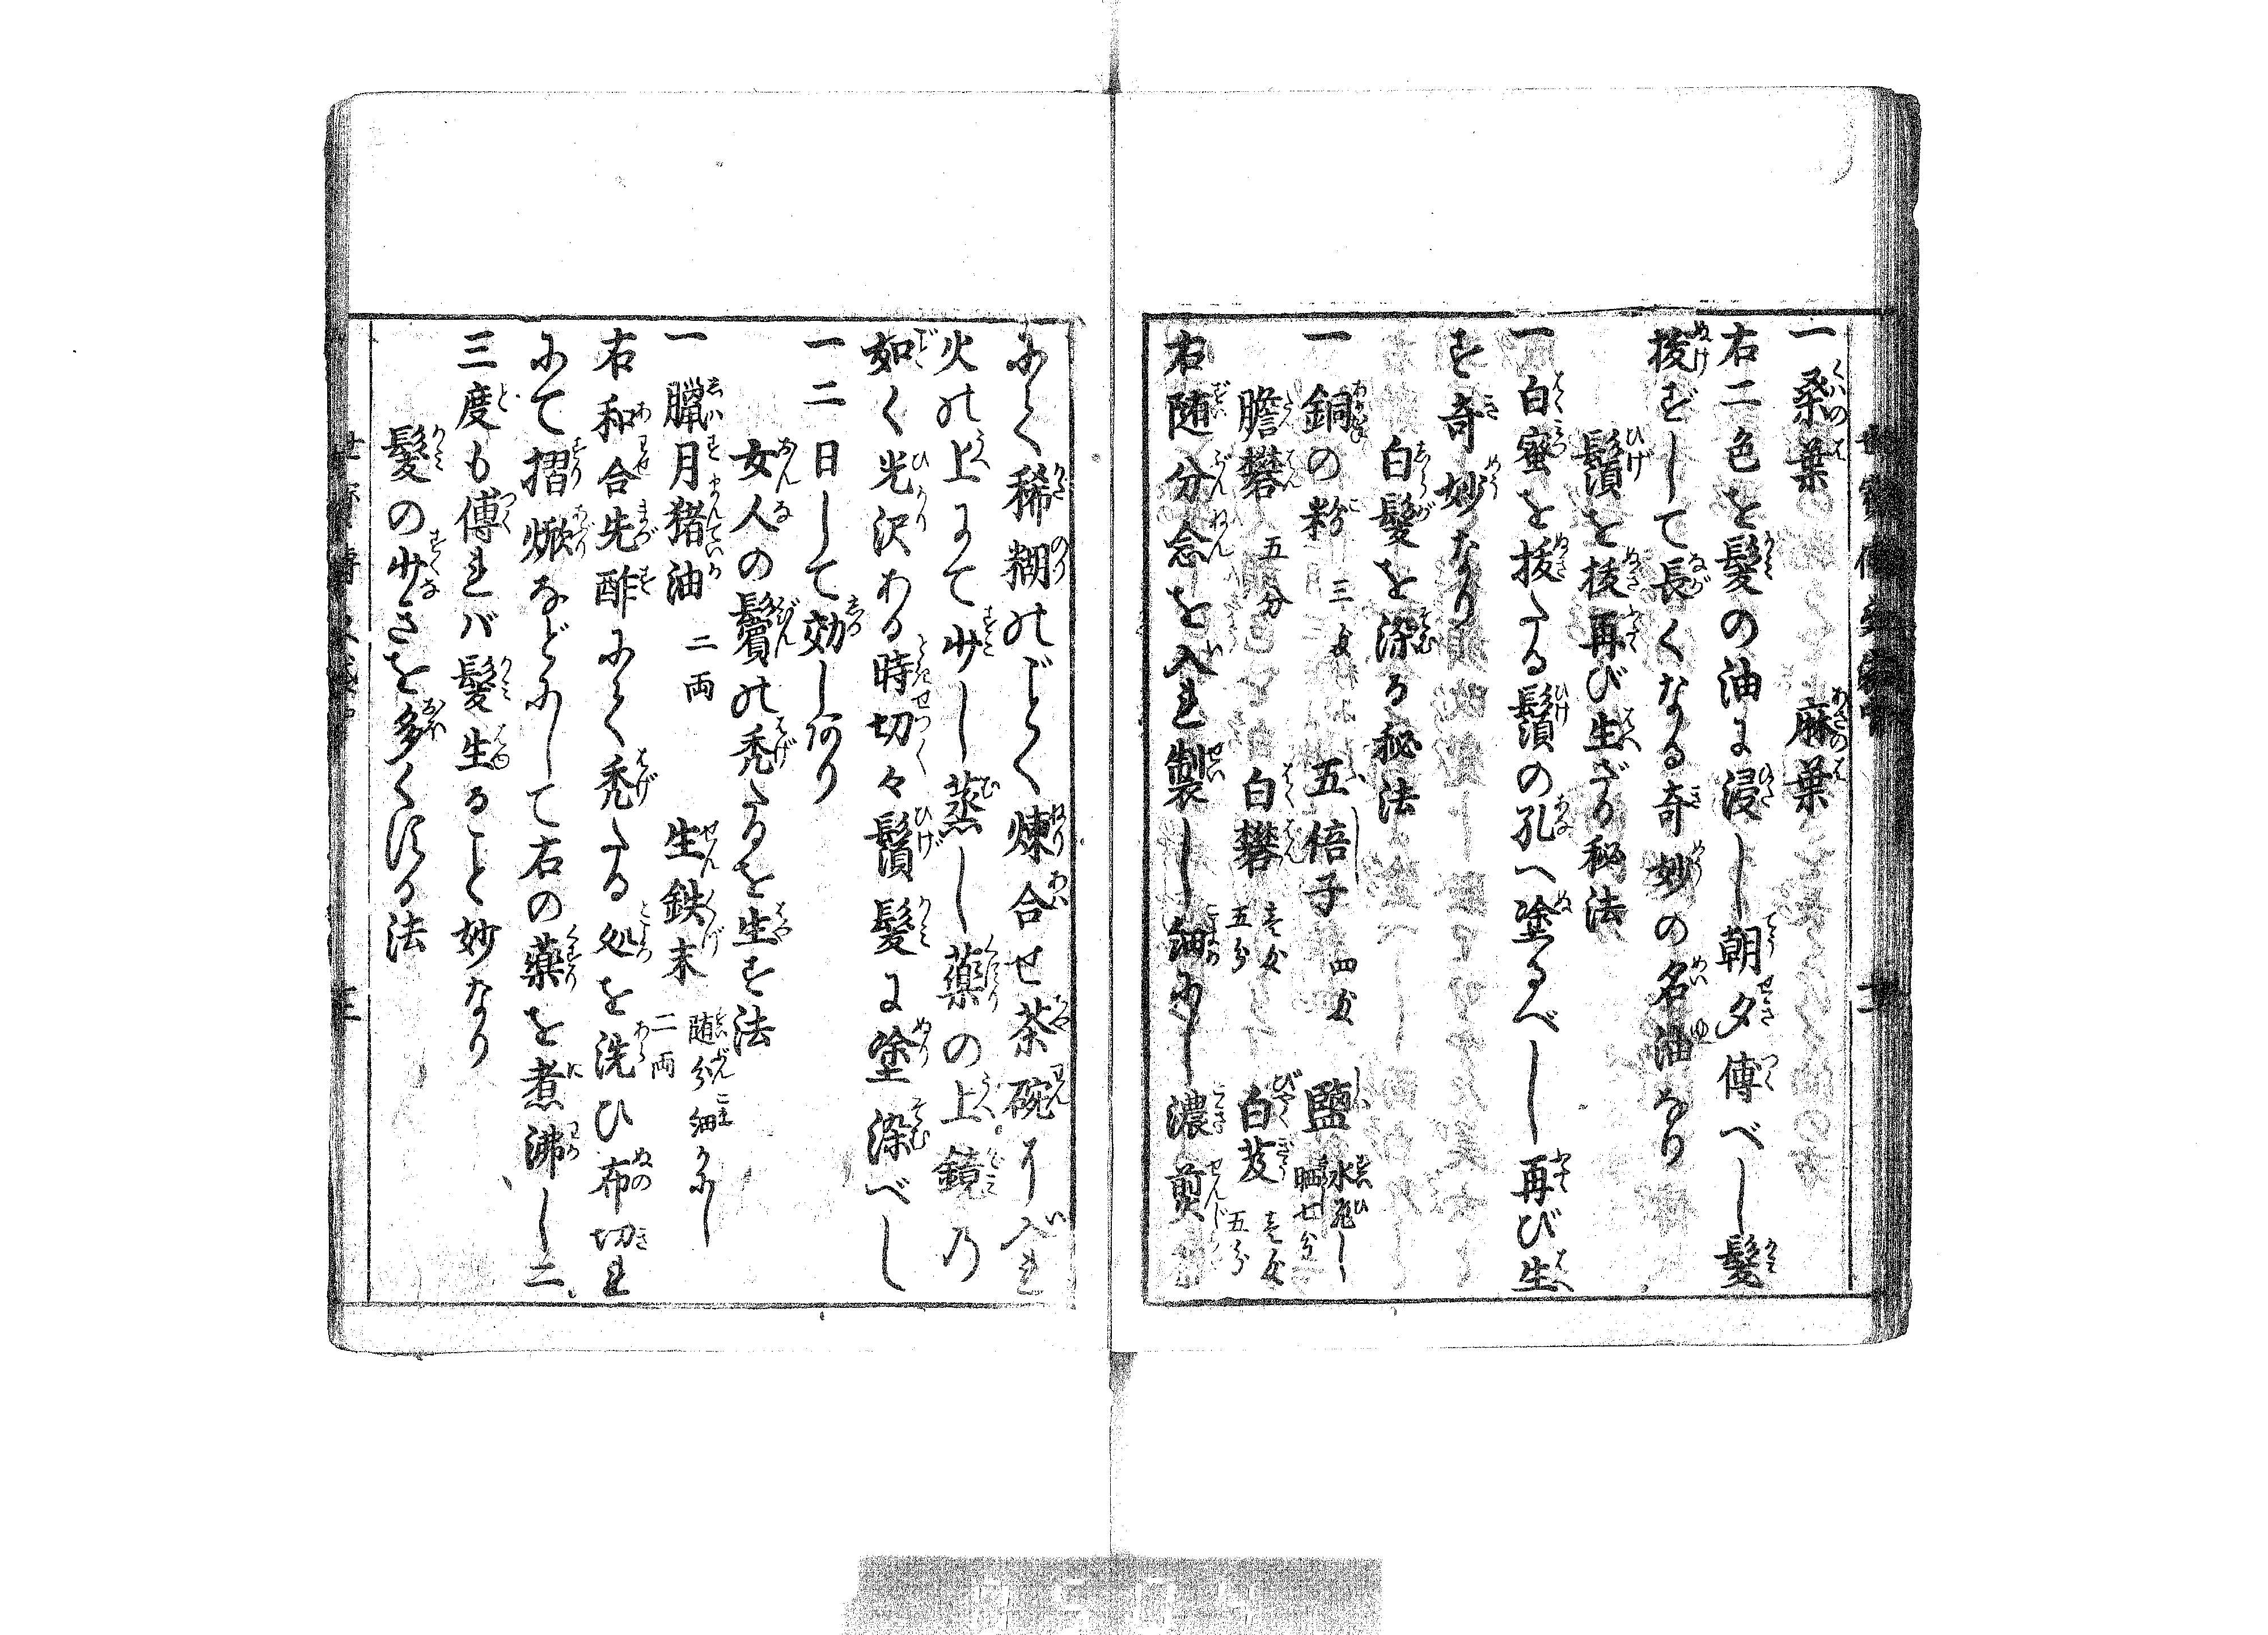 一桑葉　麻葉
右二色を髪の油に浸し朝夕傅べし髪
抜ずして長くなる奇妙の名油なり
鬚を抜再び生ざる秘法
一白蜜を抜たる鬚の孔へ塗るべし再び生
ず奇妙なり
白髪を染る秘法
一銅の粉 三匁 五倍子 四匁 鹽
膽礬 五分 白礬 壱匁五分 白芨 壱匁五分
右随分念を入れ製し細にし濃煎
にて稀糊のごとく煉合せ茶碗に入れ
火の上にて少し蒸し薬の上鏡の
如く光沢ある時切々鬚髪に塗染べし
一二日して効しあり
女人の鬢の禿たるを生ず法
一臘月猪油 二両 生鉄末 二両 随分細かにし
右和合先酢にて禿たる処を洗ひ布切れ
にて摺㷼などにして右の薬を煮沸し二
三度も傅れバ髪生ること妙なり
髪の少きを多くする法